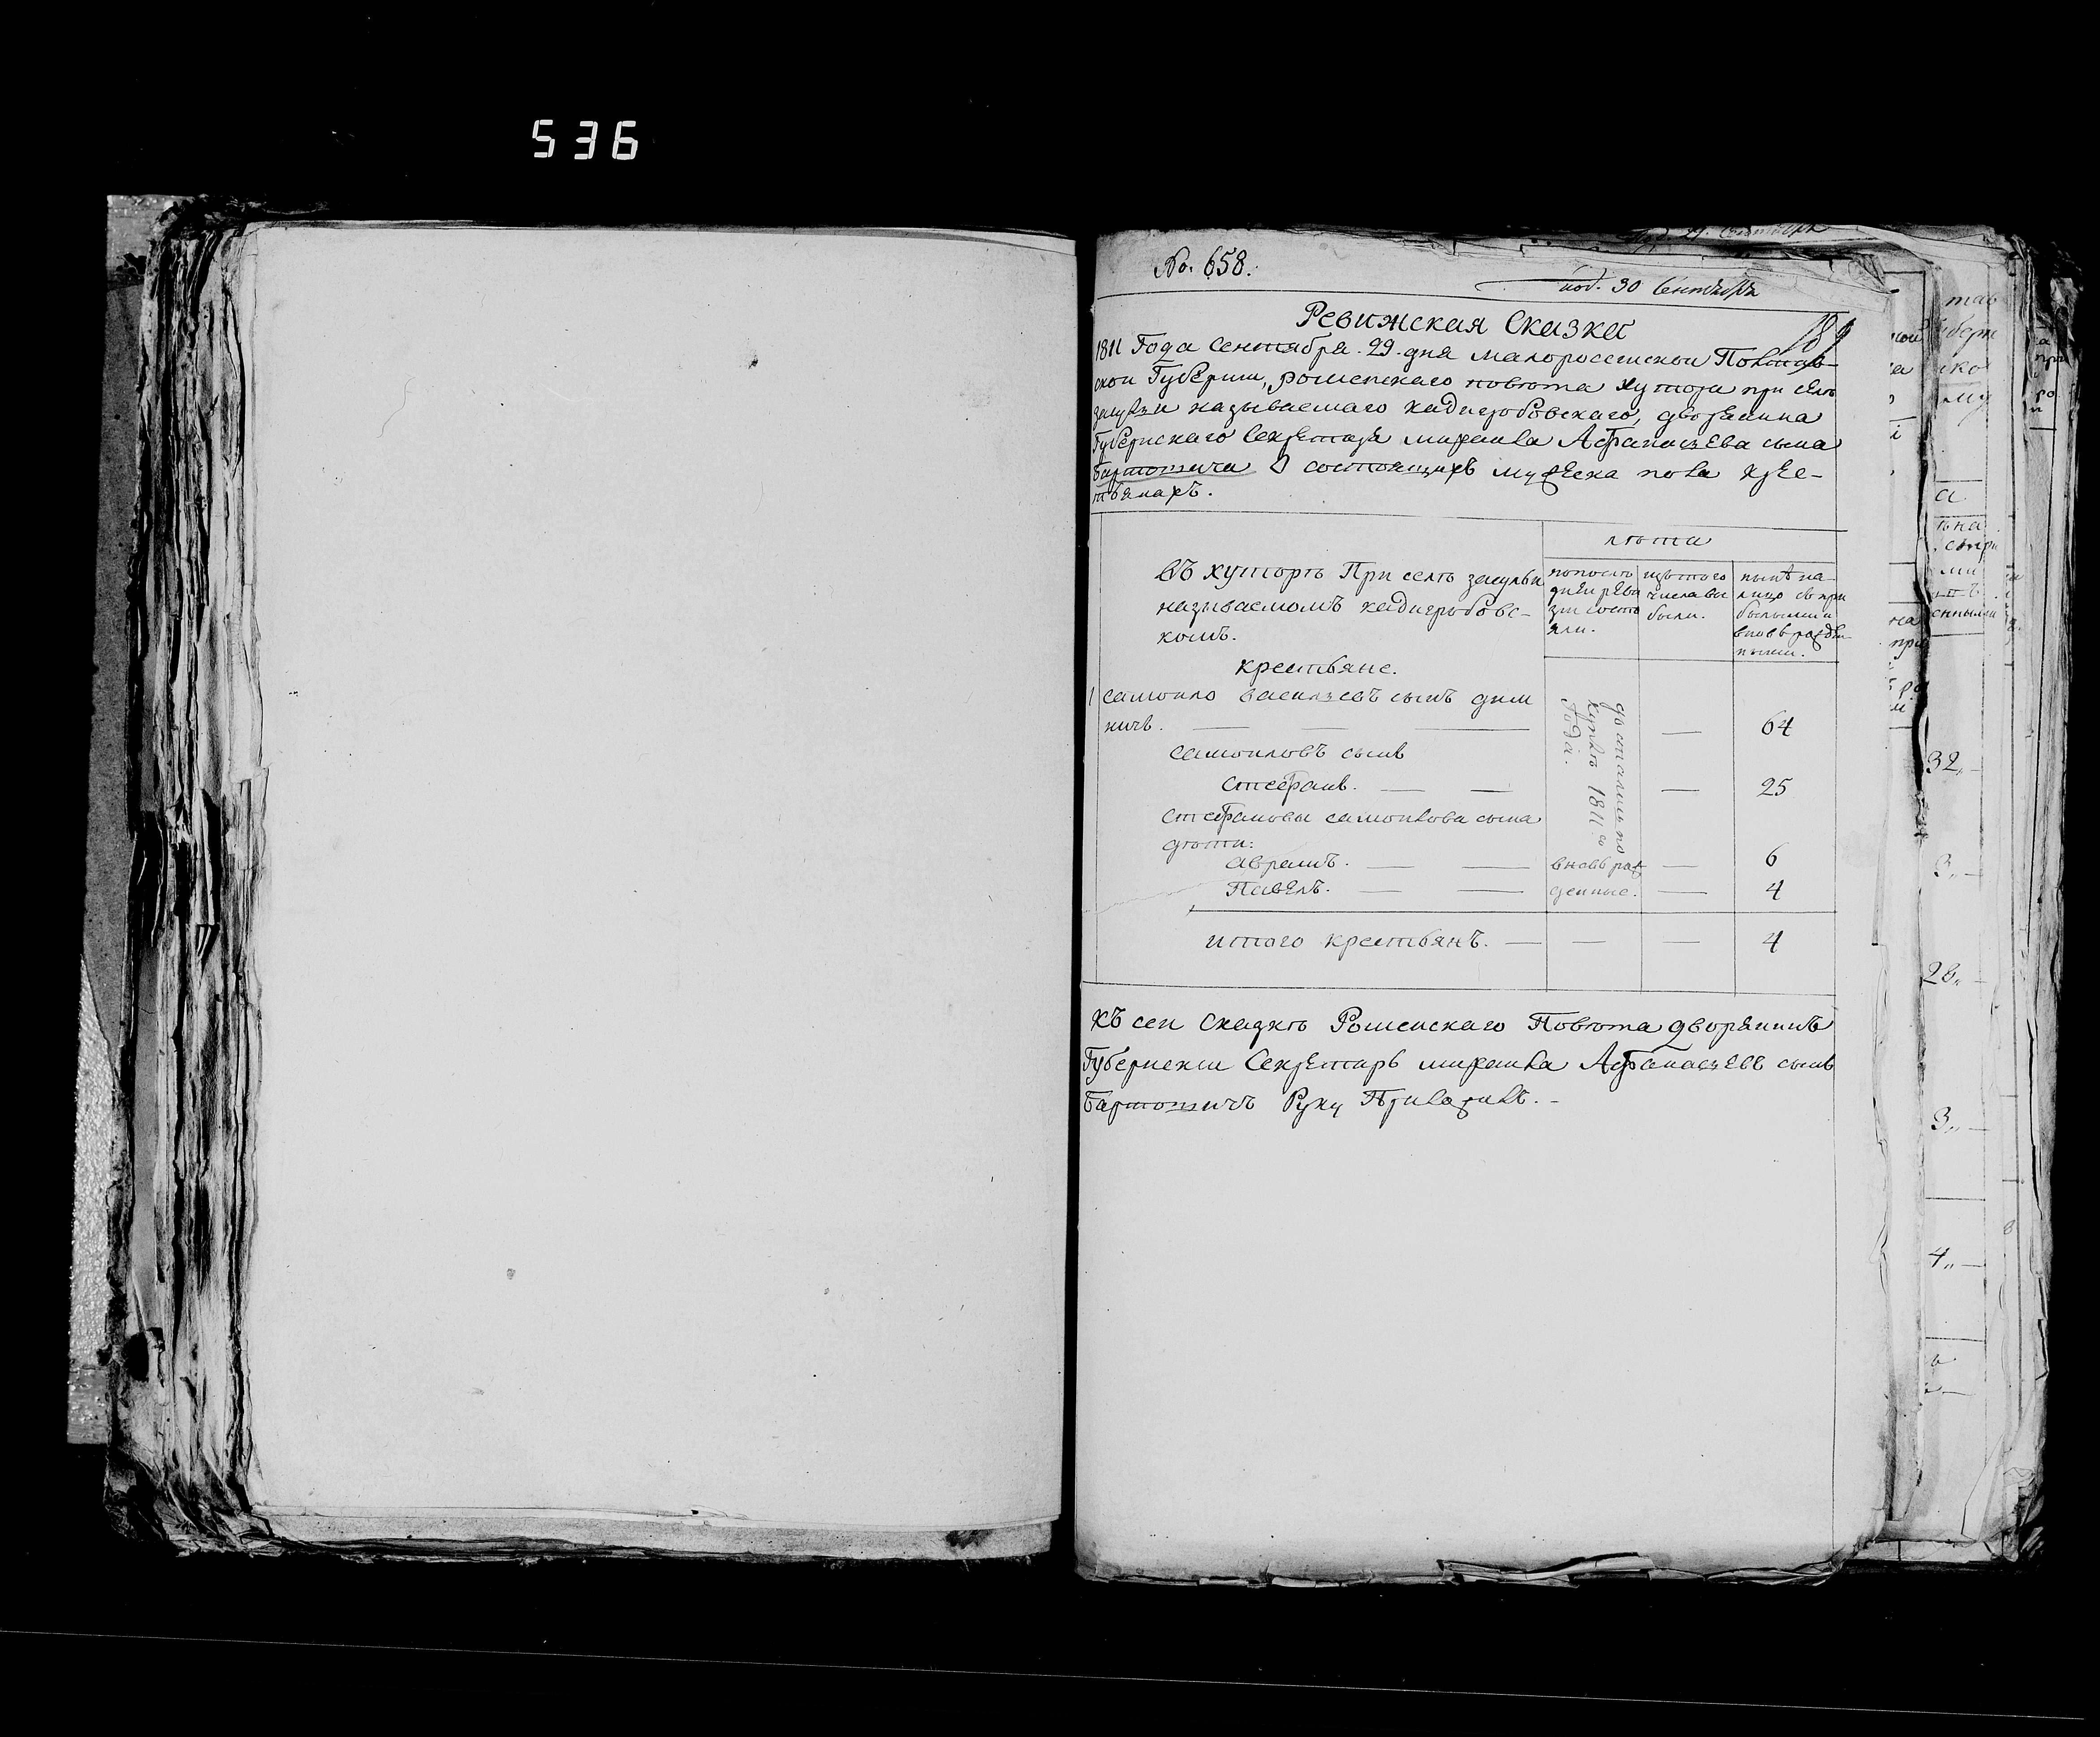 536
No. 658.
под. 30 Сентября
Ревижская Сказка
189
1811 Года Сентября 29. дня малороссиской Полтав-
ской Губернии, роменскаго повѣта хутора при селѣ
засульи называемаго кадигробовскаго, дворянина
Губернскаго Секретаря михаила Афанасьева сына
Бартошича О состоящихъ мужеска пола крес-
тьянахъ.
лѣта
въ хуторѣ При селѣ засульи
называемомъ кадигробовс-
комъ.
попослѣ
дней реви
зіи состо
яли.
изъ того
числа вы
были.
нынѣ на-
лицо съ при
былыми и
вновь рожден
ными.
крестьяне.
1 самойло васильевъ сынъ дим
ничь. — — — — 64
самойловъ сынъ
стефанъ. — — — 25
достались по
купкѣ 1811.го
Года.
стефановы самойлова сына
дѣти:
аврамъ. — — вновь рож — 6
Павелъ. — — денные. — 4
итого крестьянъ. — — — 4
Къ сей Сказкѣ Роменскаго Повѣта дворянинъ
Губернскій Секретарь михайла Афанасьевъ сынъ
Бартошичъ Руку Приложилъ. -
32,,—
3,,—
26,,—
3,,—
4,,—